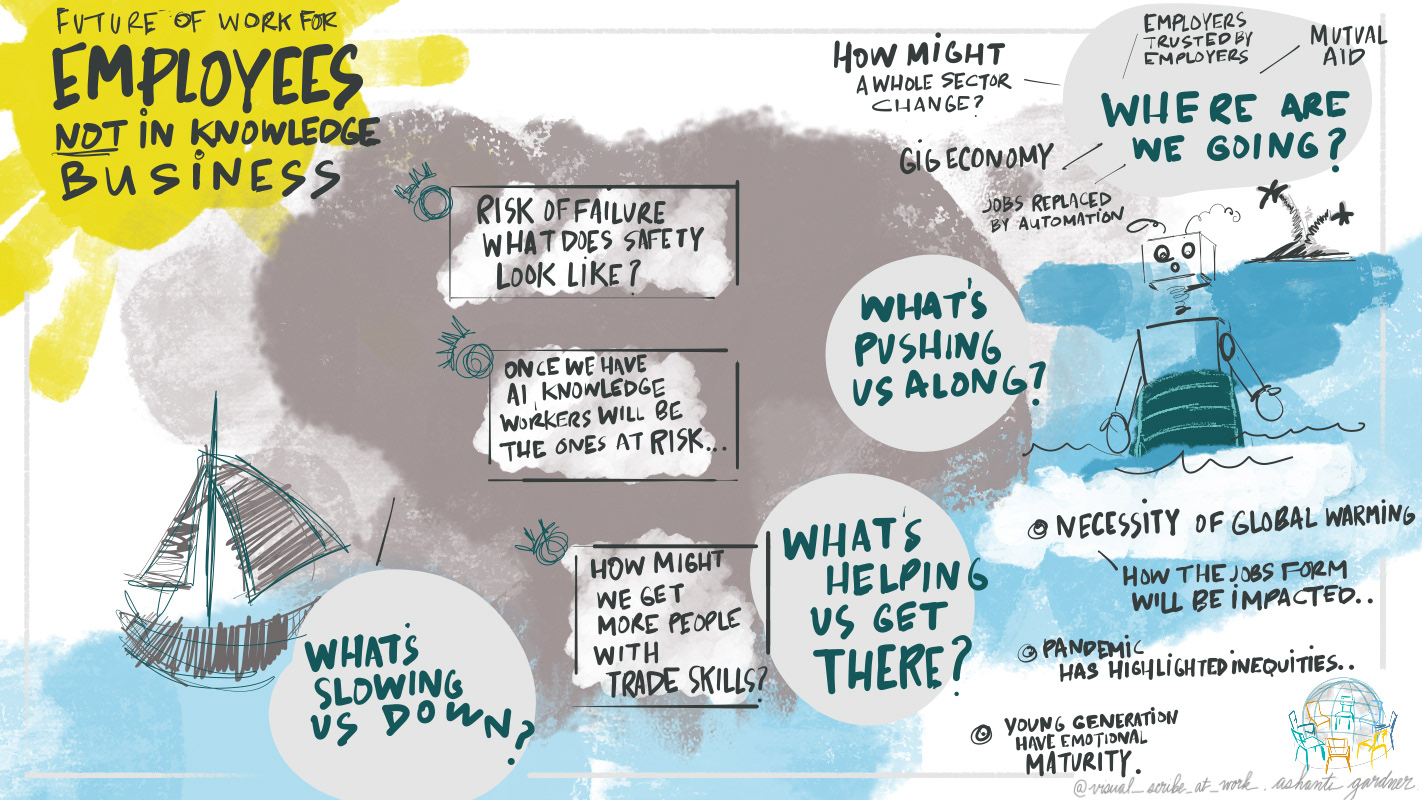 FUTURE OF WORK FOR
EMPLOYEES
NOT IN KNOWLEDGE
BUSINESS
HOW MIGHT
A WHOLE SECTOR
CHANGE?
EMPLOYERS
TRUSTED BY
EMPLOYERS
MUTUAL
AID
WHERE ARE
WE GOING?
GIG ECONOMY
JOBS REPLACED
BY AUTOMATION
RISK OF FAILURE
WHAT DOES SAFETY
LOOK LIKE?
ONCE WE HAVE
AI KNOWLEDGE
WORKERS WILL BE
THE ONES AT RISK...
HOW MIGHT
WE GET
MORE PEOPLE
WITH
TRADE SKILLS?
WHAT'S
PUSHING
US ALONG?
WHAT'S
HELPING
US GET
THERE?
WHAT'S
SLOWING
US DOWN?
NECESSITY OF GLOBAL WARMING
HOW THE JOBS FORM
WILL BE IMPACTED..
PANDEMIC
HAS HIGHLIGHTED INEQUITIES..
YOUNG GENERATION
HAVE EMOTIONAL
MATURITY.
@visual_scribe_at_work . ashanti gardner